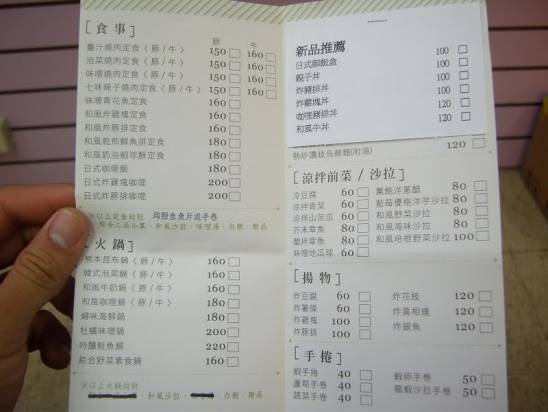 [食事]
豚 牛
薑汁燒肉定食〈豚/牛〉 150 160
泡菜燒肉定食〈豚/牛〉 150 160
味噌燒肉定食〈豚/牛〉 150 160
七味辣子燒肉定食〈豚/牛〉 150 160
味噌青花魚定食 160
和風炸雞塊定食 160
和風炸豚排定食 160
和風乾煎鮮魚排定食 180
和風奶油蝦球酥定食 180
日式咖哩飯 180
日式炸雞塊咖哩 200
日式炸豚排咖哩 200
※以上定食均附 均附生魚片或手卷
和風沙拉、味噌湯、白飯、甜品
[火鍋]
熊本昆布鍋〈豚/牛〉 160
韓式泡菜鍋〈豚/牛〉 160
和風牛奶鍋〈豚/牛〉 160
和風咖哩鍋〈豚/牛〉 160
鱘味海鮮鍋 180
牡蠣味噌鍋 200
吟釀鮭魚鍋 220
綜合野菜素食鍋 160
※以上火鍋均附
和風沙拉、白飯、甜品
新品推薦
日式御飯盒 100
親子丼 100
炸豬排丼 100
炸雞塊丼 120
咖哩豬排丼 100
和風牛丼 120
熱炒讚岐烏龍麵(附湯) 120
[涼拌前菜/沙拉]
冷豆腐 60 薰鮭洋蔥醋 80
涼拌青菜 60 藍莓優格洋芋沙拉 80
涼拌山苦瓜 60 和風野菜沙拉 80
芥末章魚 60 和風海味沙拉 80
塾拌章魚 60 和風培根野菜沙拉 100
味噌地瓜球 60
[揚物]
炸豆腐 60 炸花枝 120
炸薯條 60 炸喜相逢 120
炸雞塊 100 炸銀魚 120
炸豚排 100
[手捲]
蝦手捲 40 蝦卵手卷 50
蘆筍手卷 40 龍蝦沙拉手卷 50
蔬菜手卷 40